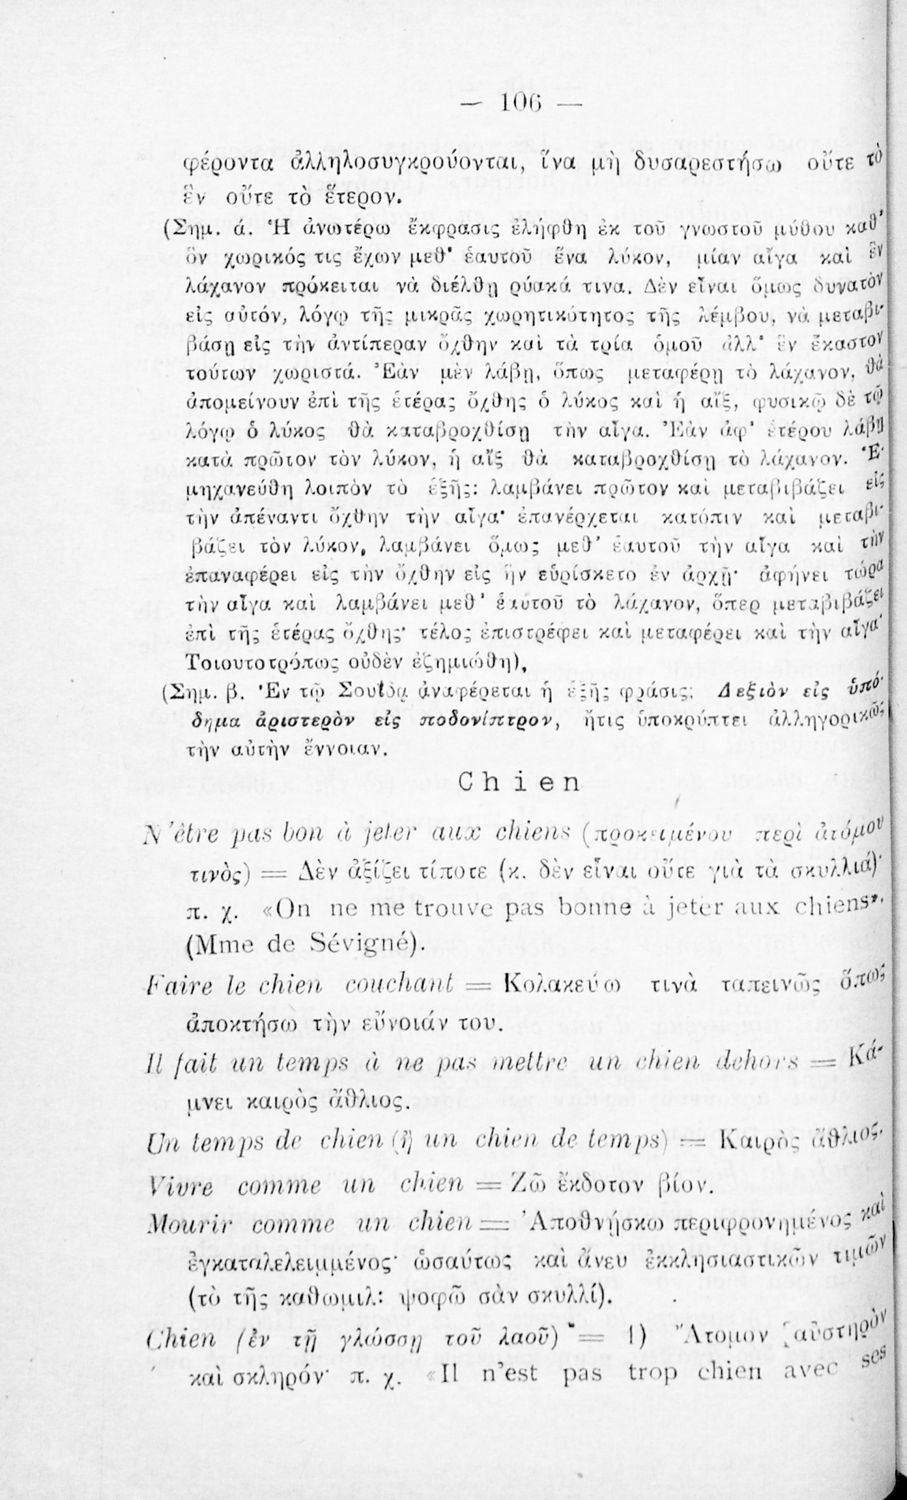 — 106 —
φέροντα ἀλληλοσυγκρούονται, ἵνα μὴ δυσαρεστήσω οὔτε τὸ
ἓν οὔτε τὸ ἕτερον.
(Σημ. ά. Ἡ ἀνωτέρω ἔκφρασις ἐλήφθη ἐκ τοῦ γνωστοῦ μύθου καθ'
ὃν χωρικός τις ἔχων μεθ' ἑαυτοῦ ἕνα λύκον, μίαν αἶγα καὶ ἓν
λάχανον πρόκειται νὰ διέλθῃ ρύακά τινα. Δὲν εἶναι ὅμως δυνατὸν
εἰς αὐτόν, λόγῳ τῆς μικρᾶς χωρητικότητος τῆς λέμβου, νὰ μεταβι-
βάσῃ εἰς τὴν ἀντίπεραν ὄχθην καὶ τὰ τρία ὁμοῦ ἀλλ' ἓν ἕκαστον
τούτων χωριστά. Ἐὰν μὲν λάβῃ, ὅπως μεταφέρῃ τὸ λάχανον, θὰ
ἀπομείνουν ἐπὶ τῆς ἑτέρας ὄχθης ὁ λύκος καὶ ἡ αἴξ, φυσικῷ δὲ τῷ
λόγῳ ὁ λύκος θὰ καταβροχθίσῃ τὴν αἶγα. Ἐὰν ἀφ' ἑτέρου λάβῃ
κατὰ πρῶτον τὸν λύκον, ἡ αἲξ θὰ καταβροχθίσῃ τὸ λάχανον. Ἐ-
μηχανεύθη λοιπὸν τὸ ἑξῆς: λαμβάνει πρῶτον καὶ μεταβιβάζει εἰς
τὴν ἀπέναντι ὄχθην τὴν αἶγα· ἐπανέρχεται κατόπιν καὶ μεταβι-
βάζει τὸν λύκον, λαμβάνει ὅμως μεθ' ἑαυτοῦ τὴν αἶγα καὶ τὴν
ἐπαναφέρει εἰς τὴν ὄχθην εἰς ἣν εὑρίσκετο ἐν ἀρχῇ· ἀφήνει τώρα
τὴν αἶγα καὶ λαμβάνει μεθ' ἑαυτοῦ τὸ λάχανον, ὅπερ μεταβιβάζει
ἐπὶ τῆς ἑτέρας ὄχθης· τέλος ἐπιστρέφει καὶ μεταφέρει καὶ τὴν αἶγα·
Τοιουτοτρόπως οὐδὲν ἐζημιώθη),
(Σημ. β. Ἐν τῷ Σουΐδᾳ ἀναφέρεται ἡ ἑξῆς φράσις: Δεξιὸν εἰς ὑπό-
δημα ἀριστερὸν εἰς ποδονίπτρον, ἥτις ὑποκρύπτει ἀλληγορικῶς
τὴν αὐτὴν ἔννοιαν.
Chien
N'être pas bon à jeter aux chiens (προκειμένου περὶ ἀτόμου
τινὸς) = Δὲν ἀξίζει τίποτε (κ. δὲν εἶναι οὔτε γιὰ τὰ σκυλλιά)·
π. χ. «On ne me trouve pas bonne à jeter aux chiens».
(Mme de Sévigné).
Faire le chien couchant = Κολακεύω τινὰ ταπεινῶς ὅπως
ἀποκτήσω τὴν εὔνοιάν του.
Il fait un temps à ne pas mettre un chien dehors = Κά-
μνει καιρὸς ἄθλιος.
Un temps de chien (ἢ un chien de temps) = Καιρὸς ἄθλιος.
Vivre comme un chien = Ζῶ ἔκδοτον βίον.
Mourir comme un chien = Ἀποθνήσκω περιφρονημένος καὶ
ἐγκαταλελειμμένος· ὡσαύτως καὶ ἄνευ ἐκκλησιαστικῶν τιμῶν
(τὸ τῆς καθωμιλ: ψοφῶ σὰν σκυλλί).
Chien (ἐν τῇ γλώσσῃ τοῦ λαοῦ) = 1) Ἄτομον αὐστηρὸν
καὶ σκληρόν· π. χ. «Il n'est pas trop chien avec ses